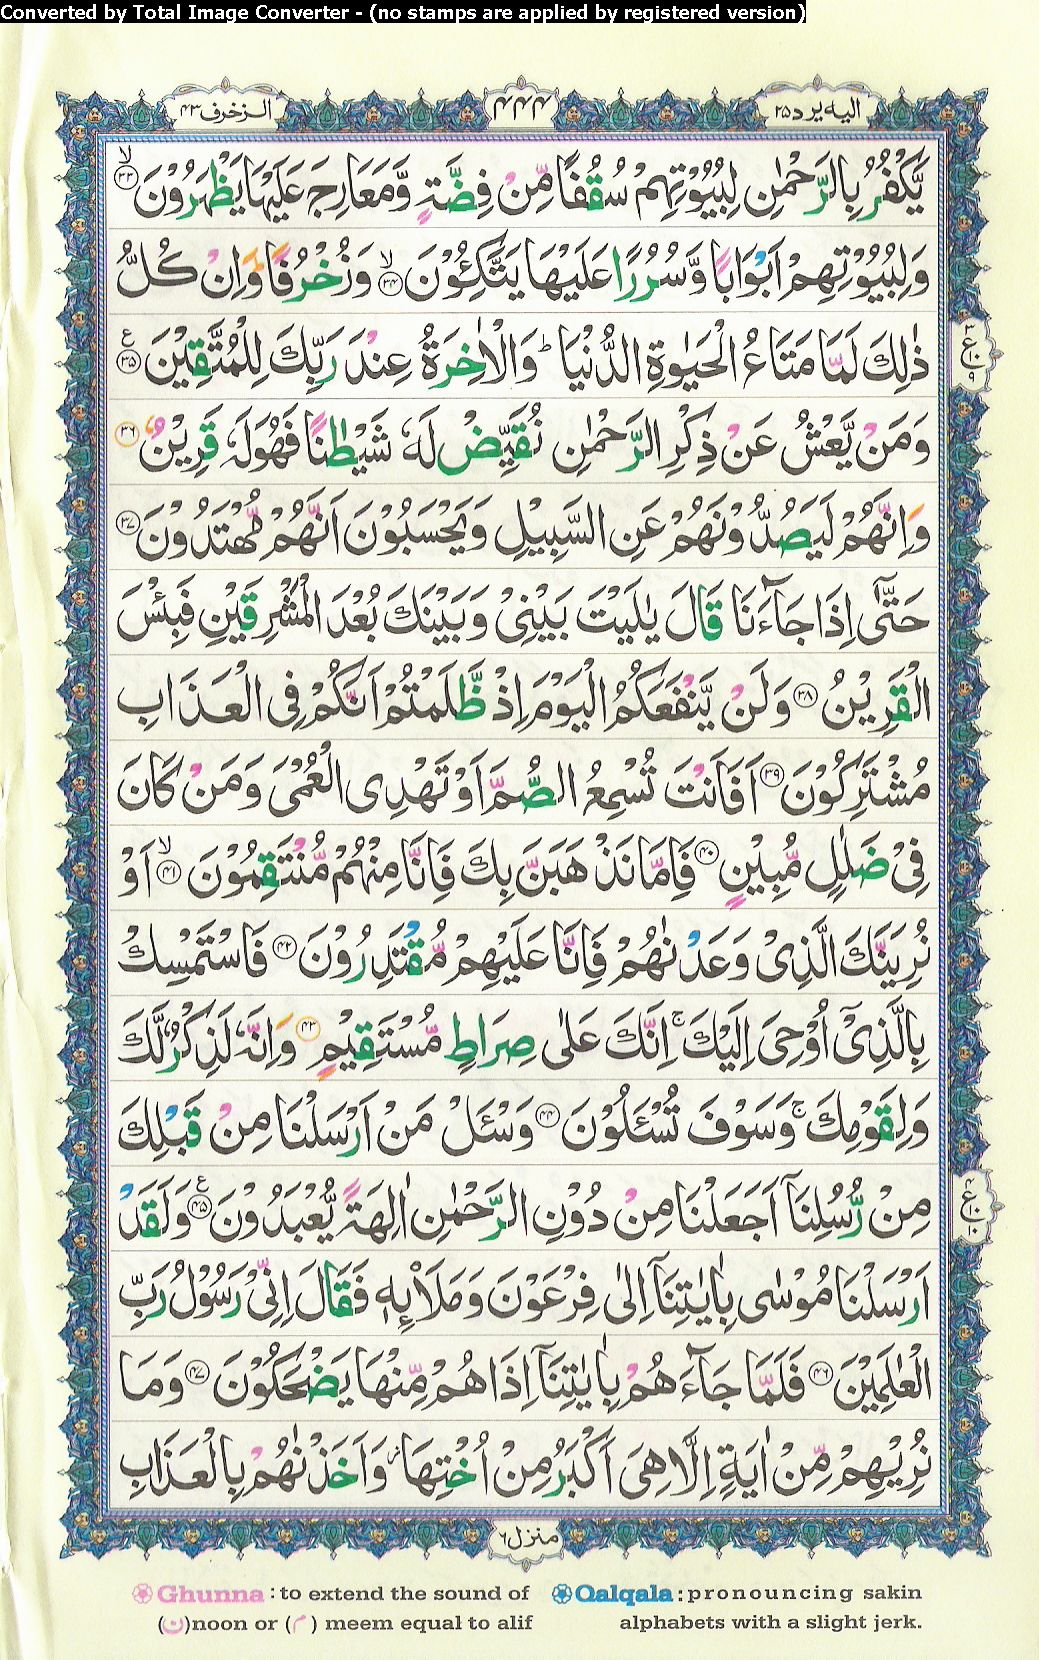 Converted by Total Image Converter - (no stamps are applied by registered version)
الیه یرد ۲۵
۴۴۴
الزخرف ۴۳
يَّكْفُرُ بِالرَّحْمٰنِ لِبُيُوْتِهِمْ سُقُفًا مِّنْ فِضَّةٍ وَّمَعَارِجَ عَلَيْهَا يَظْهَرُوْنَ ۙ﴿۳۳﴾
وَلِبُيُوْتِهِمْ اَبْوَابًا وَّسُرُرًا عَلَيْهَا يَتَّكِـُٔوْنَ ۙ﴿۳۴﴾ وَزُخْرُفًا ؕ وَاِنْ كُلُّ
ذٰلِكَ لَمَّا مَتَاعُ الْحَيٰوةِ الدُّنْيَا ؕ وَالْاٰخِرَةُ عِنْدَ رَبِّكَ لِلْمُتَّقِيْنَ ﴿۳۵﴾ ع
۳ ع ۱۰ ۹
وَمَنْ يَّعْشُ عَنْ ذِكْرِ الرَّحْمٰنِ نُقَيِّضْ لَهٗ شَيْطٰنًا فَهُوَ لَهٗ قَرِيْنٌ ﴿۳۶﴾
وَاِنَّهُمْ لَيَصُدُّوْنَهُمْ عَنِ السَّبِيْلِ وَيَحْسَبُوْنَ اَنَّهُمْ مُّهْتَدُوْنَ ﴿۳۷﴾
حَتّٰٓى اِذَا جَآءَنَا قَالَ يٰلَيْتَ بَيْنِيْ وَبَيْنَكَ بُعْدَ الْمَشْرِقَيْنِ فَبِئْسَ
الْقَرِيْنُ ﴿۳۸﴾ وَلَنْ يَّنْفَعَكُمُ الْيَوْمَ اِذْ ظَّلَمْتُمْ اَنَّكُمْ فِى الْعَذَابِ
مُشْتَرِكُوْنَ ﴿۳۹﴾ اَفَاَنْتَ تُسْمِعُ الصُّمَّ اَوْ تَهْدِى الْعُمْىَ وَمَنْ كَانَ
فِيْ ضَلٰلٍ مُّبِيْنٍ ﴿۴۰﴾ فَاِمَّا نَذْهَبَنَّ بِكَ فَاِنَّا مِنْهُمْ مُّنْتَقِمُوْنَ ۙ﴿۴۱﴾ اَوْ
نُرِيَنَّكَ الَّذِيْ وَعَدْنٰهُمْ فَاِنَّا عَلَيْهِمْ مُّقْتَدِرُوْنَ ﴿۴۲﴾ فَاسْتَمْسِكْ
بِالَّذِيْٓ اُوْحِيَ اِلَيْكَ ۚ اِنَّكَ عَلٰى صِرَاطٍ مُّسْتَقِيْمٍ ﴿۴۳﴾ وَاِنَّهٗ لَذِكْرٌ لَّكَ
وَلِقَوْمِكَ ۚ وَسَوْفَ تُسْـَٔلُوْنَ ﴿۴۴﴾ وَسْـَٔلْ مَنْ اَرْسَلْنَا مِنْ قَبْلِكَ
مِنْ رُّسُلِنَآ اَجَعَلْنَا مِنْ دُوْنِ الرَّحْمٰنِ اٰلِهَةً يُّعْبَدُوْنَ ﴿۴۵﴾ ع وَلَقَدْ
۴ ع ۱۰ ۱۰
اَرْسَلْنَا مُوْسٰى بِاٰيٰتِنَآ اِلٰى فِرْعَوْنَ وَمَلَا۟ئِهٖ فَقَالَ اِنِّيْ رَسُوْلُ رَبِّ
الْعٰلَمِيْنَ ﴿۴۶﴾ فَلَمَّا جَآءَهُمْ بِاٰيٰتِنَآ اِذَا هُمْ مِّنْهَا يَضْحَكُوْنَ ﴿۴۷﴾ وَمَا
نُرِيْهِمْ مِّنْ اٰيَةٍ اِلَّا هِيَ اَكْبَرُ مِنْ اُخْتِهَا ؗ وَاَخَذْنٰهُمْ بِالْعَذَابِ
منزل ۶
Ghunna : to extend the sound of
(ن)noon or (م) meem equal to alif
Qalqala : pronouncing sakin
alphabets with a slight jerk.